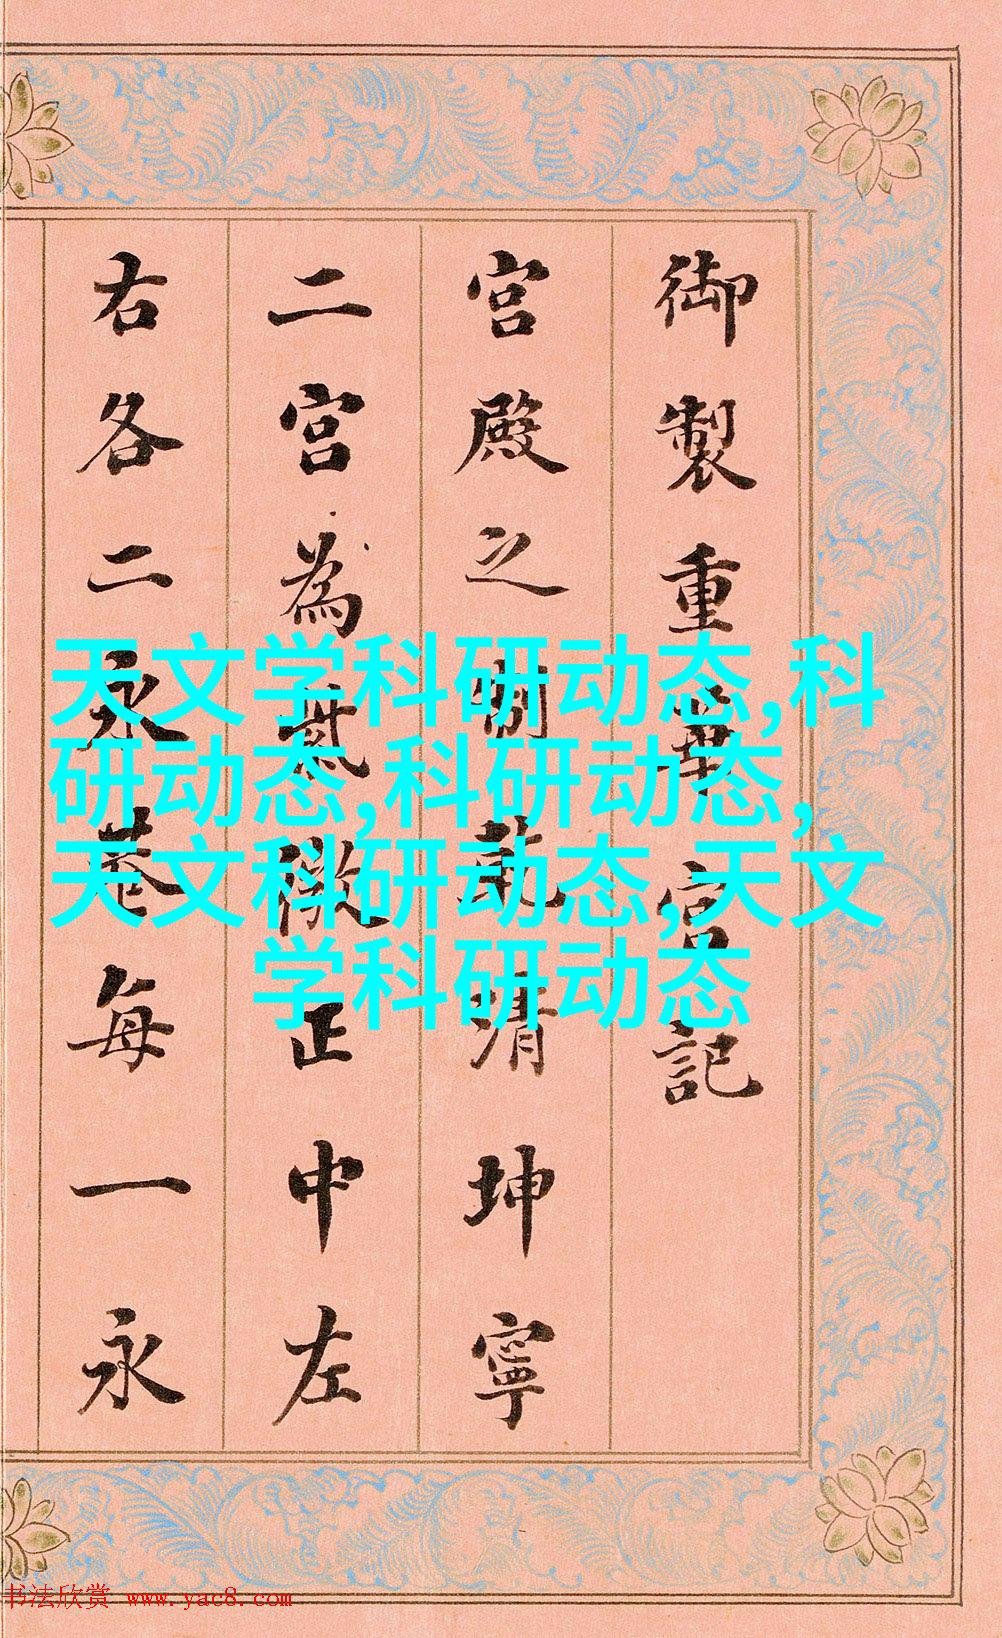 御製重華宮記
宮殿之制乾清坤寧
二宮為紫微正中左
右各二永巷每一永
天文学科研动态,科
研动态,科研动态,
天文科研动态,天文
学科研动态
书法欣赏 www.yac8.com